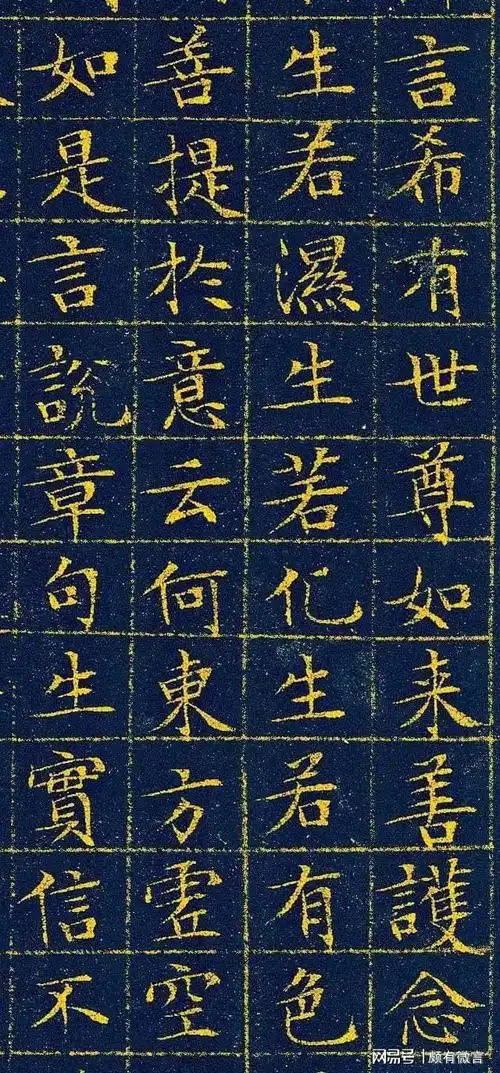 言希有世尊如来善護念
生若濕生若化生若有色
菩提於意云何東方虛空
如是言説章句生實信不
网易号 | 颇有微言